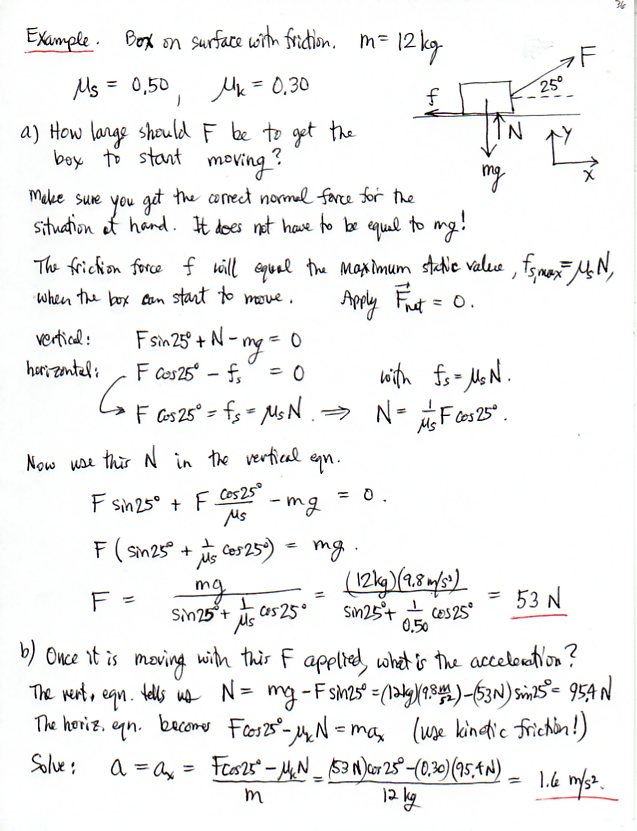 36
Example. Box on surface with friction. m = 12 kg
μs = 0.50, μk = 0.30
F
25°
f
N
mg
y
x
a) How large should F be to get the
box to start moving?
Make sure you get the correct normal force for the
situation at hand. It does not have to be equal to mg!
The friction force f will equal the maximum static value, fs,max = μsN,
when the box can start to move. Apply F⃗net = 0.
vertical: F sin25° + N - mg = 0
horizontal: F cos25° - fs = 0 with fs = μsN.
F cos25° = fs = μsN. ⇒ N = 1/μs F cos25°.
Now use this N in the vertical eqn.
F sin25° + F cos25°/μs - mg = 0.
F ( sin25° + 1/μs cos25°) = mg.
F = mg / (sin25° + 1/μs cos25°) = (12kg)(9.8 m/s²) / (sin25° + 1/0.50 cos25°) = 53 N
b) Once it is moving with this F applied, what is the acceleration?
The vert. eqn. tells us N = mg - F sin25° = (12kg)(9.8 m/s²) - (53N) sin25° = 95.4 N
The horiz. eqn. becomes F cos25° - μkN = max (use kinetic friction!)
Solve: a = ax = (F cos25° - μkN) / m = ((53 N) cos25° - (0.30)(95.4 N)) / 12 kg = 1.6 m/s².